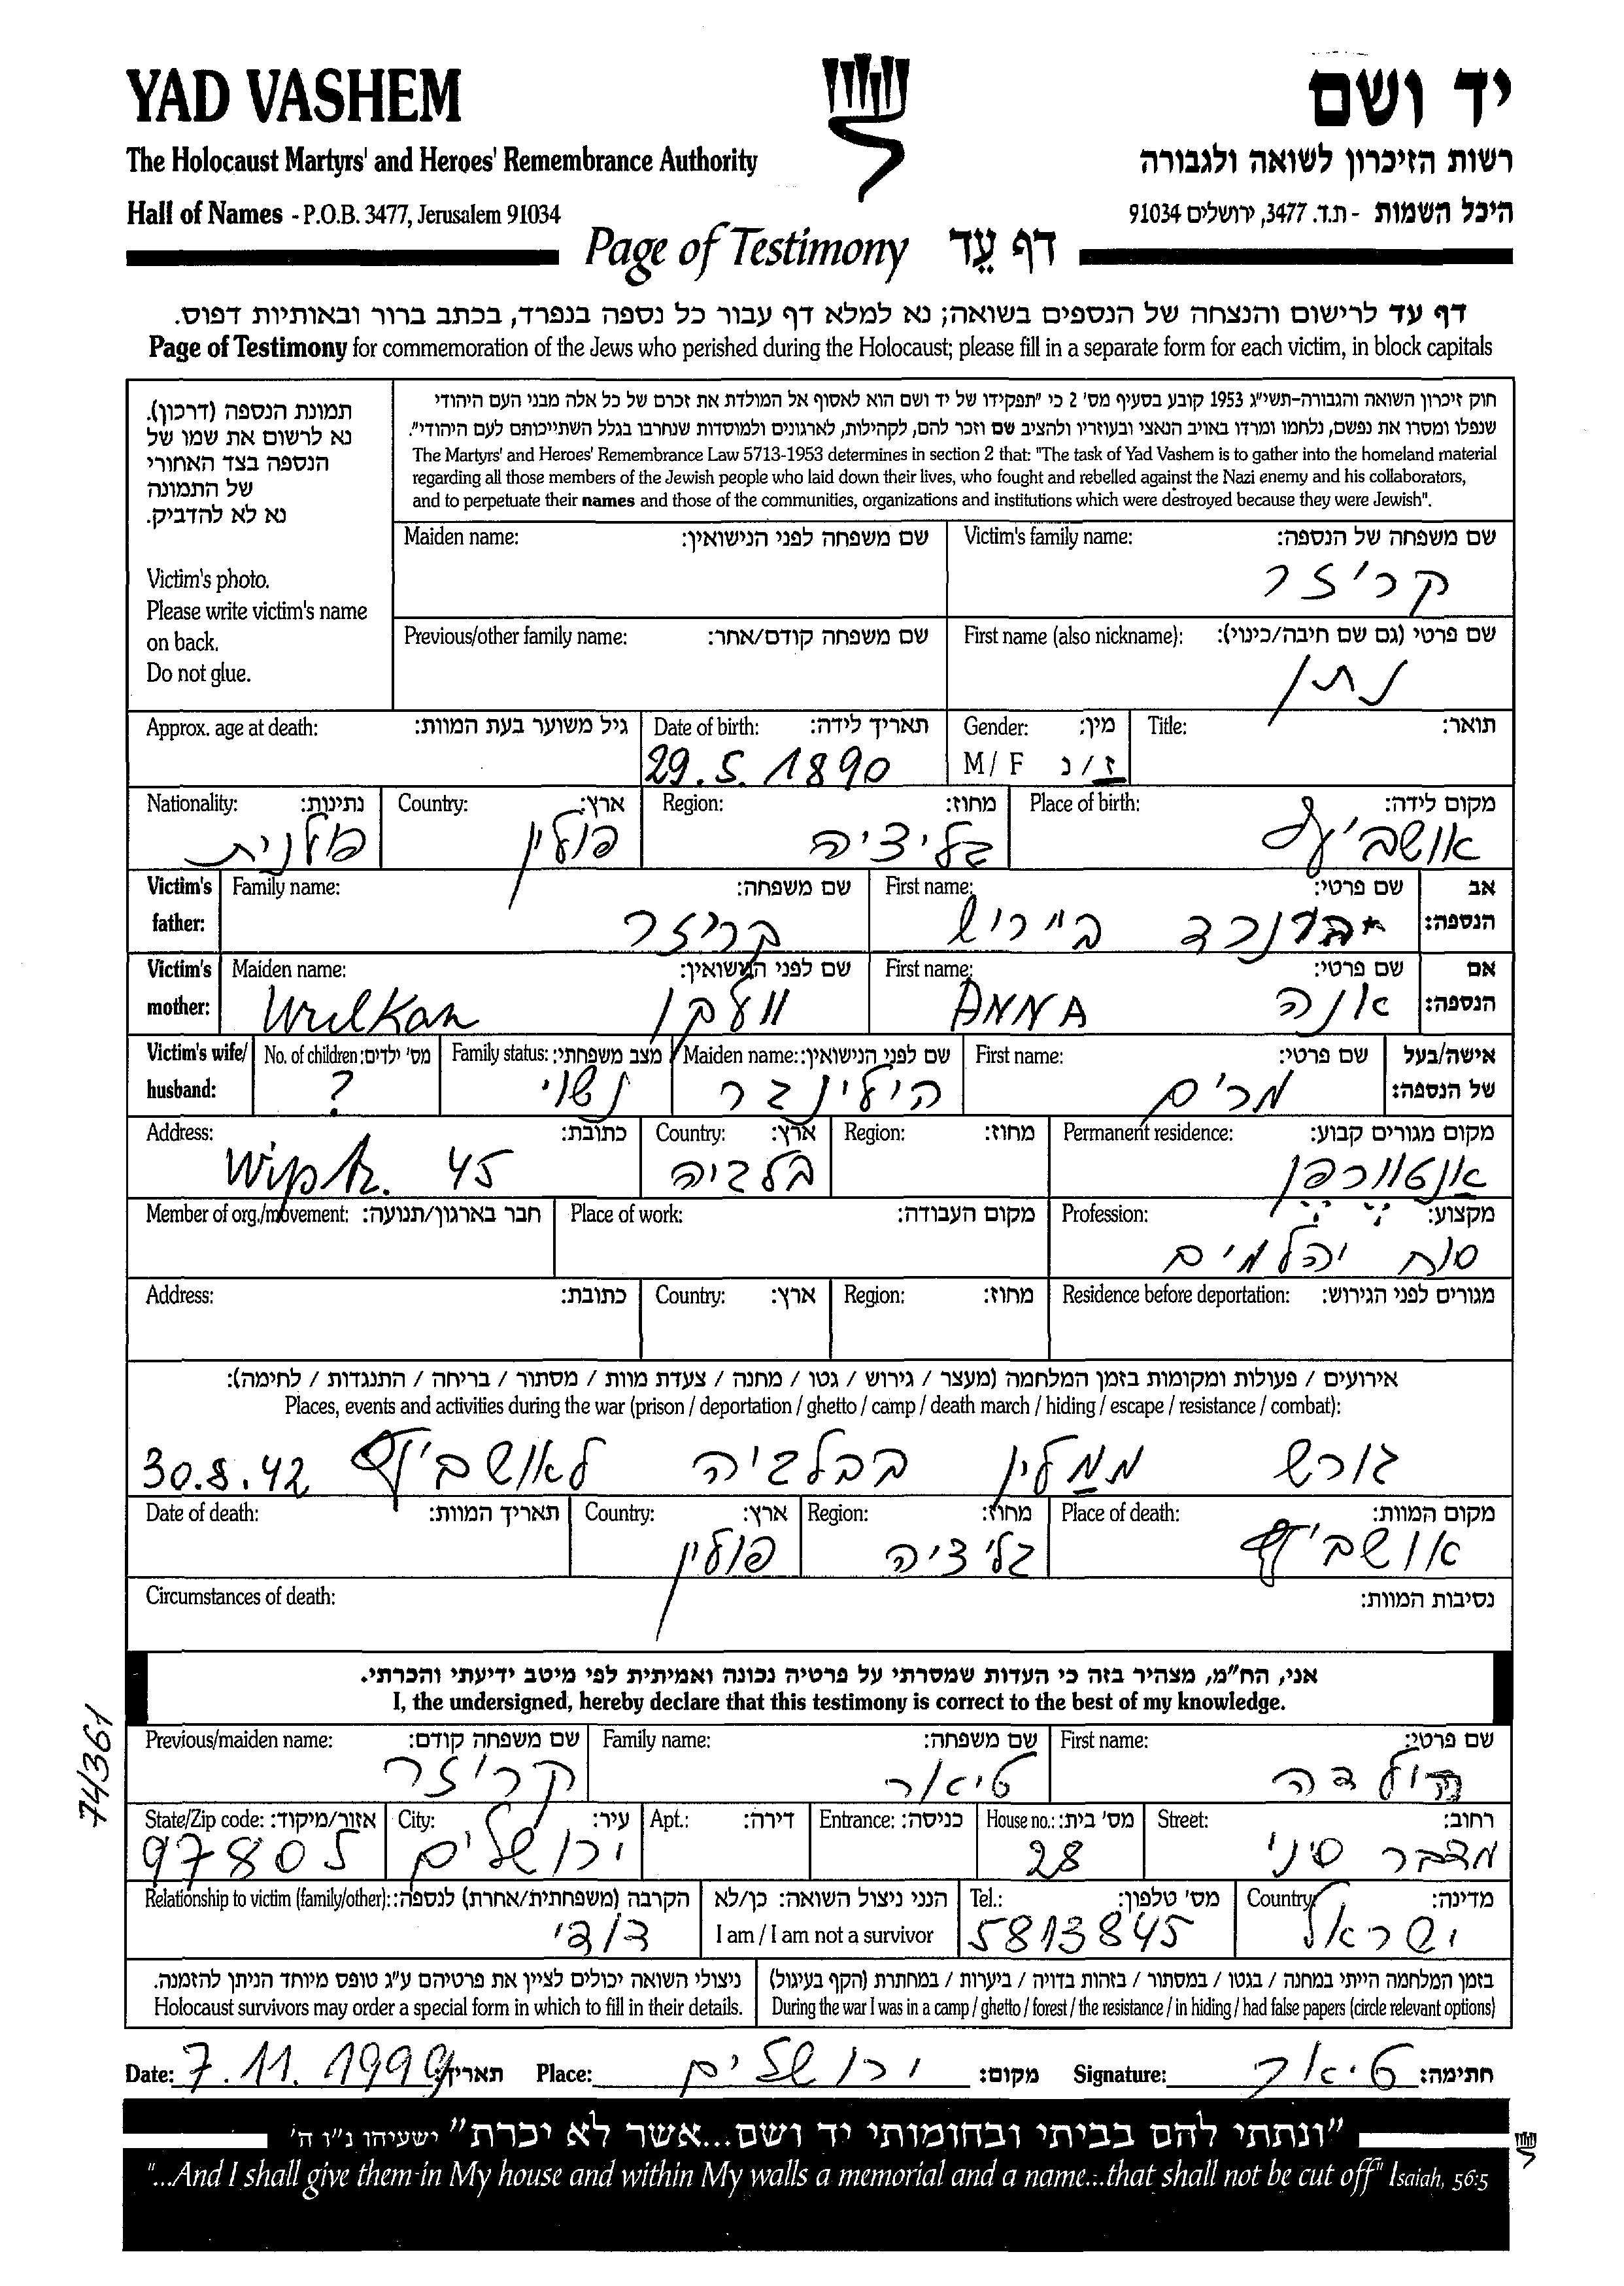 YAD VASHEM
יד ושם
The Holocaust Martyrs' and Heroes' Remembrance Authority
רשות הזיכרון לשואה ולגבורה
Hall of Names - P.O.B. 3477, Jerusalem 91034
היכל השמות - ת.ד. 3477, ירושלים 91034
Page of Testimony דף עֵד
דף עד לרישום והנצחה של הנספים בשואה; נא למלא דף עבור כל נספה בנפרד, בכתב ברור ובאותיות דפוס.
Page of Testimony for commemoration of the Jews who perished during the Holocaust; please fill in a separate form for each victim, in block capitals
תמונת הנספה (דרכון).
נא לרשום את שמו של
הנספה בצד האחורי
של התמונה
נא לא להדביק.
Victim's photo.
Please write victim's name
on back.
Do not glue.
חוק זיכרון השואה והגבורה-תשי"ג 1953 קובע בסעיף מס' 2 כי "תפקידו של יד ושם הוא לאסוף אל המולדת את זכרם של כל אלה מבני העם היהודי
שנפלו ומסרו את נפשם, נלחמו ומרדו באויב הנאצי ובעוזריו ולהציב שם וזכר להם, לקהילות, לארגונים ולמוסדות שנחרבו בגלל השתייכותם לעם היהודי".
The Martyrs' and Heroes' Remembrance Law 5713-1953 determines in section 2 that: "The task of Yad Vashem is to gather into the homeland material
regarding all those members of the Jewish people who laid down their lives, who fought and rebelled against the Nazi enemy and his collaborators,
and to perpetuate their names and those of the communities, organizations and institutions which were destroyed because they were Jewish".
Maiden name: שם משפחה לפני הנישואין:
Victim's family name: שם משפחה של הנספה:
קריזר
Previous/other family name: שם משפחה קודם/אחר:
First name (also nickname): שם פרטי (גם שם חיבה/כינוי):
נתן
Approx. age at death: גיל משוער בעת המוות:
Date of birth: תאריך לידה:
29.5.1890
Gender: מין:
M/F ז/נ
Title: תואר:
Nationality: נתינות:
פולנית
Country: ארץ:
פולין
Region: מחוז:
גליציה
Place of birth: מקום לידה:
אושביץ
Victim's father:
Family name: שם משפחה:
קריזר
First name: שם פרטי:
ברנרד בייריש
אב הנספה:
Victim's mother:
Maiden name: שם לפני הנישואין:
Wulkan וולקן
First name: שם פרטי:
ANNA אנה
אם הנספה:
Victim's wife/husband:
No. of children: מס' ילדים:
?
Family status: מצב משפחתי:
נשוי
Maiden name: שם לפני הנישואין:
הילינגר
First name: שם פרטי:
מרים
אישה/בעל של הנספה:
Address: כתובת:
45
Country: ארץ:
בלגיה
Region: מחוז:
Permanent residence: מקום מגורים קבוע:
אנטוורפן
Member of org./movement: חבר בארגון/תנועה:
Place of work: מקום העבודה:
Profession: מקצוע:
סוח יהלמים
Address: כתובת:
Country: ארץ:
Region: מחוז:
Residence before deportation: מגורים לפני הגירוש:
אירועים / פעולות ומקומות בזמן המלחמה (מעצר / גירוש / גטו / מחנה / צעדת מוות / מסתור / בריחה / התנגדות / לחימה):
Places, events and activities during the war (prison / deportation / ghetto / camp / death march / hiding / escape / resistance / combat):
גורש ממלין בבלגיה לאושביץ 30.8.42
Date of death: תאריך המוות:
Country: ארץ:
פולין
Region: מחוז:
גליציה
Place of death: מקום המוות:
אושביץ
Circumstances of death: נסיבות המוות:
אני, הח"מ, מצהיר בזה כי העדות שמסרתי על פרטיה נכונה ואמיתית לפי מיטב ידיעתי והכרתי.
I, the undersigned, hereby declare that this testimony is correct to the best of my knowledge.
74/361
Previous/maiden name: שם משפחה קודם:
קריזר
Family name: שם משפחה:
טיאר
First name: שם פרטי:
State/Zip code: אזור/מיקוד:
97805
City: עיר:
ירושלים
Apt.: דירה:
Entrance: כניסה:
House no.: מס' בית:
28
Street: רחוב:
מדבר סיני
Relationship to victim (family/other): הקרבה (משפחתית/אחרת) לנספה:
דודי
הנני ניצול השואה: כן/לא
I am / I am not a survivor
Tel.: מס' טלפון:
5813845
Country: מדינה:
ישראל
ניצולי השואה יכולים לציין את פרטיהם ע"ג טופס מיוחד הניתן להזמנה.
Holocaust survivors may order a special form in which to fill in their details.
בזמן המלחמה הייתי במחנה / בגטו / במסתור / בזהות בדויה / ביערות / במחתרת (הקף בעיגול)
During the war I was in a camp / ghetto / forest / the resistance / in hiding / had false papers (circle relevant options)
Date: 7.11.1999 תאריך: Place: ירושלים מקום: Signature: טיאר חתימה:
"ונתתי להם בביתי ובחומותי יד ושם...אשר לא יכרת" ישעיהו נ"ו ה'
"...And I shall give them in My house and within My walls a memorial and a name...that shall not be cut off" Isaiah, 56:5